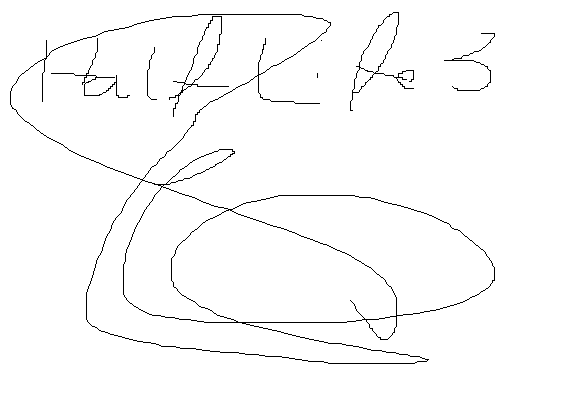 Half Life 3